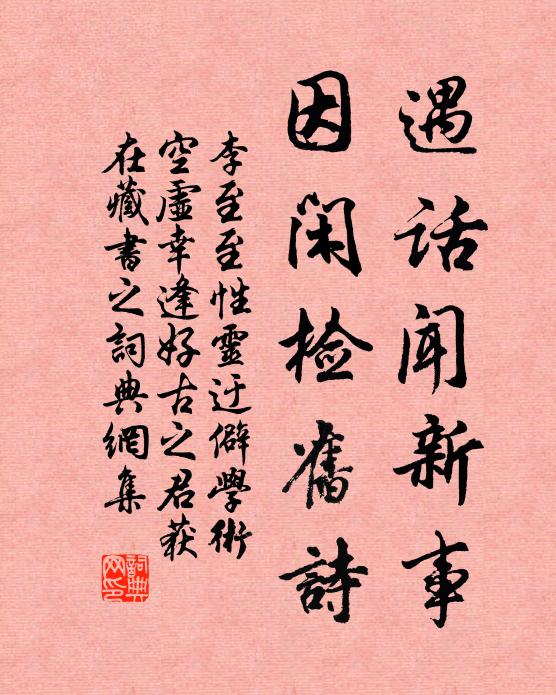 遇话闻新事
因闲检舊詩
李至至性靈迂僻學術
空虛幸逢好古之君获
在藏書之詞典網集
詞典
网印